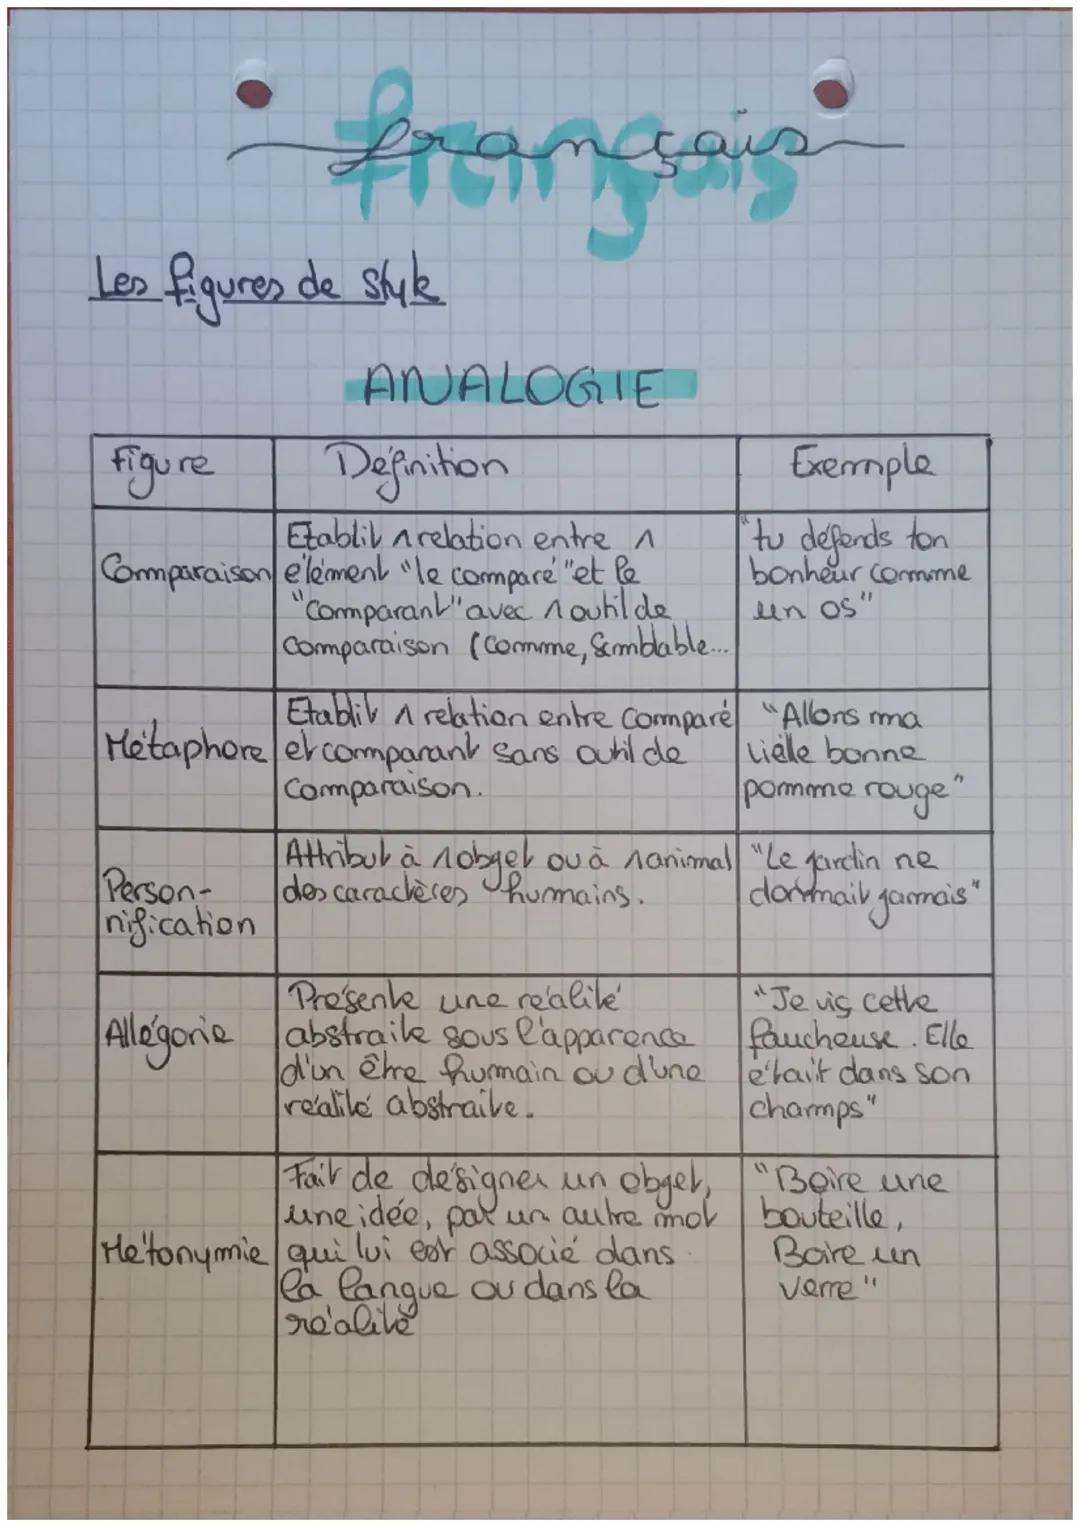 français
français
Les figures de style
ANALOGIE
Figure
Définition
Exemple
Comparaison
Etablit 1 relation entre 1
élément "le comparé" et le
"comparant" avec 1 outil de
comparaison (comme, semblable...
"tu défends ton
bonheur comme
un os"
Métaphore
Etablit 1 relation entre comparé
et comparant sans outil de
comparaison.
"Allons ma
vielle bonne
pomme rouge"
Person-
nification
Attribut à 1 objet ou à 1 animal
des caractères humains.
"Le jardin ne
dormait jamais"
Allégorie
Présente une réalité
abstraite sous l'apparence
d'un être humain ou d'une
réalité abstraite.
"Je vis cette
faucheuse. Elle
était dans son
champs"
Métonymie
Fait de désigner un objet,
une idée, par un autre mot
qui lui est associé dans
la langue ou dans la
réalité
"Boire une
bouteille,
Boire un
verre"